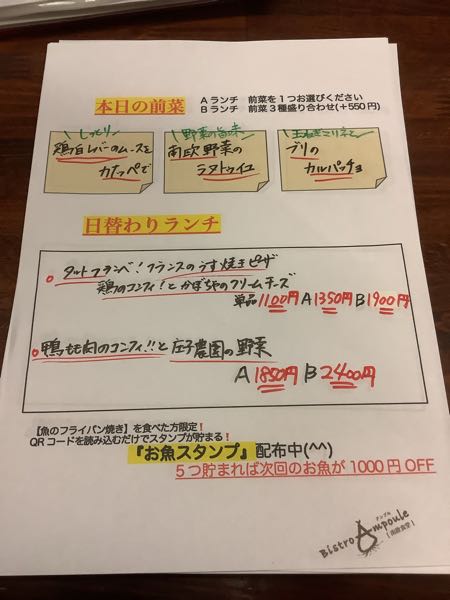 本日の前菜
Aランチ 前菜を1つお選びください
Bランチ 前菜3種盛り合わせ(+550円)
\しっとり/
鶏白レバーのムースを
カナッペで
\野菜の旨味/
南欧野菜の
ラタトゥイユ
\玉ねぎマリネと/
ブリの
カルパッチョ
日替わりランチ
タルトフランベ!フランスのうす焼きピザ
鶏のコンフィ!とかぼちゃのクリームチーズ
単品1100円 A1350円 B1900円
鴨もも肉のコンフィ!!と庄子農園の野菜
A1850円 B2400円
【魚のフライパン焼き】を食べた方限定!
QRコードを読み込むだけでスタンプが貯まる!
『お魚スタンプ』配布中(^^)
5つ貯まれば次回のお魚が1000円OFF
アンプル
Bistro Ampoule
[南欧食堂]